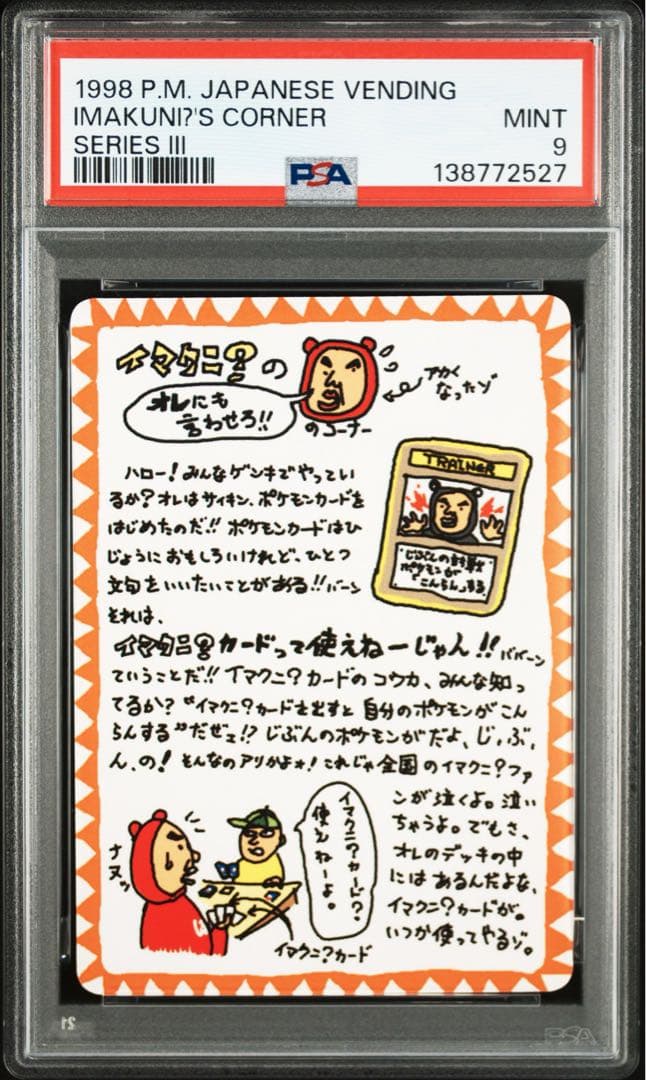 1998 P.M. JAPANESE VENDING
IMAKUNI?'S CORNER
MINT
SERIES III
9
PSA
138772527
イマクニ?の
オレにも
言わせろ!!
のコーナー
アカく
なったゾ
ハロー!みんなゲンキでやってい
るか?オレはサイキン、ポケモンカードを
はじめたのだ!!ポケモンカードはひ
じょうにおもしろいけれど、ひとつ
文句をいいたいことがある!!バーン
それは、
TRAINER
じぶんの対戦
ポケモンが
「こんらん」する
イマクニ?カードって使えねーじゃん!!ババーン
ていうことだ!!イマクニ?カードのコウカ、みんな知っ
てるか?“イマクニ?カードを出すと自分のポケモンがこん
らんする”だぜェ!?じぶんのポケモンがだよ、じ、ぶ、
ん、の!そんなのアリかよォ!これじゃ全国のイマクニ?ファ
ンが泣くよ。泣い
ちゃうよ。でもさ、
オレのデッキの中
にはあるんだよな、
イマクニ?カードが。
いつか使ってやるゾ。
イマクニ?カード?
使えねーよ。
ナヌッ
イマクニ?カード
21
PSA